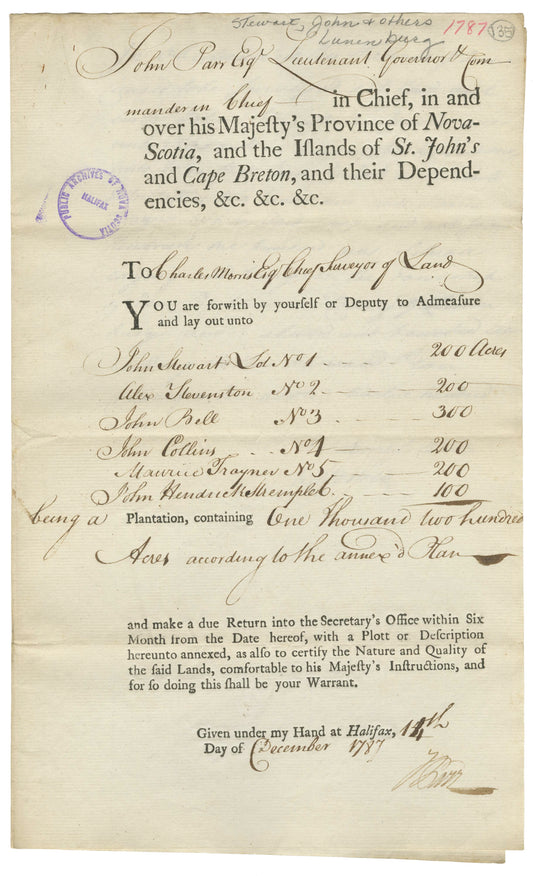 Stewart, John & others
Lunenburg
1787
135
John Parr Esqr Lieutenant Governor & Com
mander in Chief in Chief, in and
over his Majeſty's Province of Nova-
Scotia, and the Iſlands of St. John's
and Cape Breton, and their Depend-
encies, &c. &c. &c.
PUBLIC ARCHIVES OF NOVA SCOTIA
HALIFAX
To Charles Morris Esqr Chief Surveyor of Land
YOU are forwith by yourſelf or Deputy to Admeaſure
and lay out unto
John Stewart Lot No 1 200 Acres
Alex Stevenston No 2 200
John Bell No 3 300
John Collins No 4 200
Maurice Trayner No 5 200
John Hendrick 6. 100
being a Plantation, containing One Thousand two hundred
Acres according to the annex'd Plan
and make a due Return into the Secretary's Office within Six
Month from the Date hereof, with a Plott or Deſcription
hereunto annexed, as alſo to certify the Nature and Quality of
the ſaid Lands, comfortable to his Majeſty's Inſtructions, and
for ſo doing this ſhall be your Warrant.
Given under my Hand at Halifax, 14th
Day of December 1787
J Parr